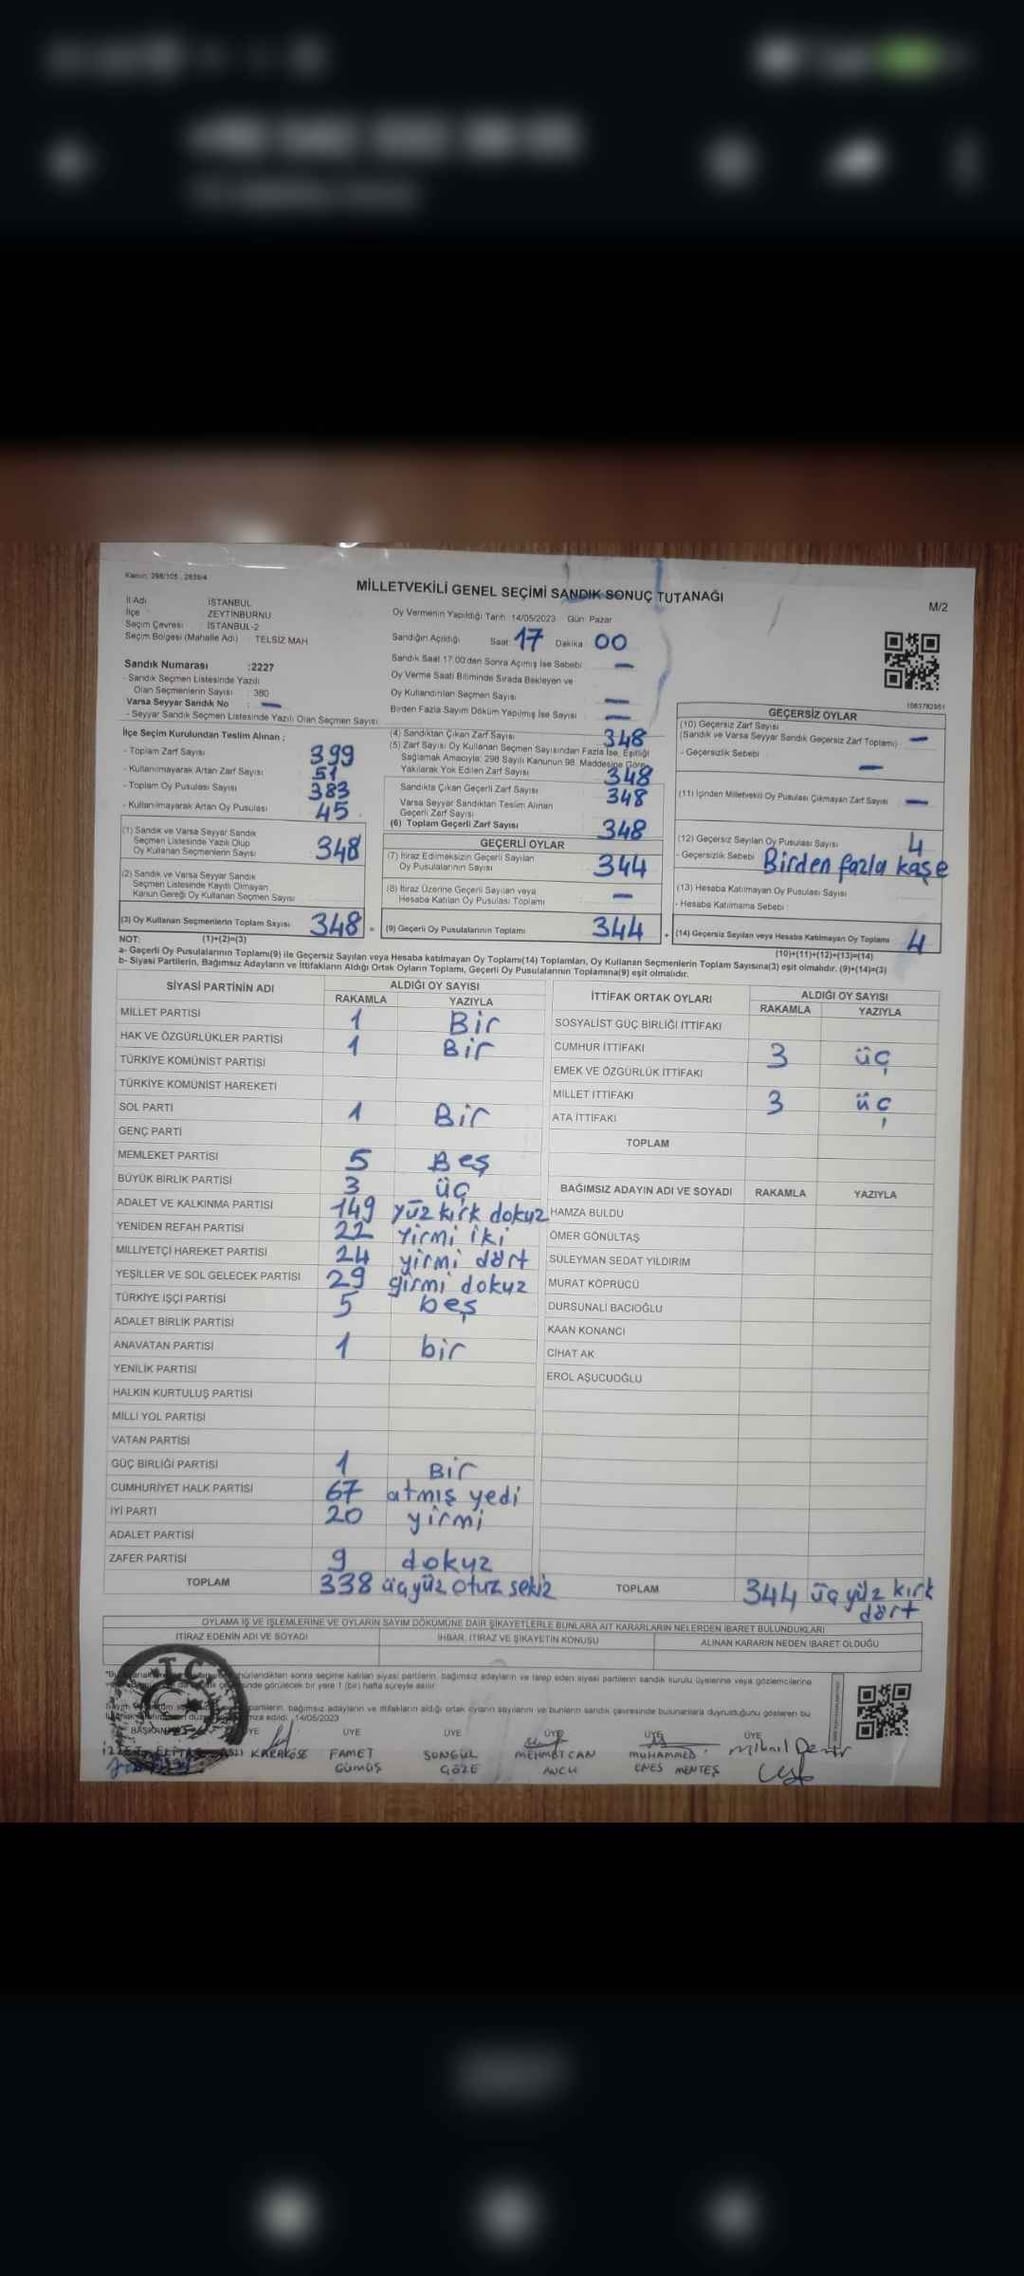 Kanun: 298/105 , 2839/4
MİLLETVEKİLİ GENEL SEÇİMİ SANDIK SONUÇ TUTANAĞI
M/2
İl Adı : İSTANBUL
İlçe : ZEYTİNBURNU
Seçim Çevresi : İSTANBUL-2
Seçim Bölgesi (Mahalle Adı) : TELSİZ MAH
Oy Vermenin Yapıldığı Tarih: 14/05/2023 Gün: Pazar
Sandığın Açıldığı Saat 17 Dakika 00
Sandık Saat 17:00'dan Sonra Açılmış İse Sebebi —
Oy Verme Saati Bitiminde Sırada Bekleyen ve
Oy Kullandırılan Seçmen Sayısı —
Birden Fazla Sayım Döküm Yapılmış İse Sayısı —
Sandık Numarası :2227
- Sandık Seçmen Listesinde Yazılı
Olan Seçmenlerin Sayısı : 380
Varsa Seyyar Sandık No : —
- Seyyar Sandık Seçmen Listesinde Yazılı Olan Seçmen Sayısı:
İlçe Seçim Kurulundan Teslim Alınan ;
- Toplam Zarf Sayısı : 399
- Kullanılmayarak Artan Zarf Sayısı : 51
- Toplam Oy Pusulası Sayısı : 383
- Kullanılmayarak Artan Oy Pusulası : 45
(1) Sandık ve Varsa Seyyar Sandık
Seçmen Listesinde Yazılı Olup
Oy Kullanan Seçmenlerin Sayısı 348
(2) Sandık ve Varsa Seyyar Sandık
Seçmen Listesinde Kayıtlı Olmayan
Kanun Gereği Oy Kullanan Seçmen Sayısı
(3) Oy Kullanan Seçmenlerin Toplam Sayısı 348 =
(4) Sandıktan Çıkan Zarf Sayısı 348
(5) Zarf Sayısı Oy Kullanan Seçmen Sayısından Fazla İse, Eşitliği
Sağlamak Amacıyla; 298 Sayılı Kanunun 98. Maddesine Göre
Yakılarak Yok Edilen Zarf Sayısı 348
Sandıkta Çıkan Geçerli Zarf Sayısı 348
Varsa Seyyar Sandıktan Teslim Alınan
Geçerli Zarf Sayısı
(6) Toplam Geçerli Zarf Sayısı 348
GEÇERLİ OYLAR
(7) İtiraz Edilmeksizin Geçerli Sayılan
Oy Pusulalarının Sayısı 344
(8) İtiraz Üzerine Geçerli Sayılan veya
Hesaba Katılan Oy Pusulası Toplamı —
(9) Geçerli Oy Pusulalarının Toplamı 344 +
1083782951
GEÇERSİZ OYLAR
(10) Geçersiz Zarf Sayısı
(Sandık ve Varsa Seyyar Sandık Geçersiz Zarf Toplamı) —
- Geçersizlik Sebebi : —
(11) İçinden Milletvekili Oy Pusulası Çıkmayan Zarf Sayısı —
(12) Geçersiz Sayılan Oy Pusulası Sayısı 4
- Geçersizlik Sebebi : Birden fazla kaşe
(13) Hesaba Katılmayan Oy Pusulası Sayısı
- Hesaba Katılmama Sebebi :
(14) Geçersiz Sayılan veya Hesaba Katılmayan Oy Toplamı 4
NOT: (1)+(2)=(3) (10)+(11)+(12)+(13)=(14)
a- Geçerli Oy Pusulalarının Toplamı(9) ile Geçersiz Sayılan veya Hesaba katılmayan Oy Toplamı(14) Toplamları, Oy Kullanan Seçmenlerin Toplam Sayısına(3) eşit olmalıdır. (9)+(14)=(3)
b- Siyasi Partilerin, Bağımsız Adayların ve İttifakların Aldığı Ortak Oyların Toplamı, Geçerli Oy Pusulalarının Toplamına(9) eşit olmalıdır.
SİYASİ PARTİNİN ADI ALDIĞI OY SAYISI
RAKAMLA YAZIYLA
MİLLET PARTİSİ 1 Bir
HAK VE ÖZGÜRLÜKLER PARTİSİ 1 Bir
TÜRKİYE KOMÜNİST PARTİSİ
TÜRKİYE KOMÜNİST HAREKETİ
SOL PARTİ 1 Bir
GENÇ PARTİ
MEMLEKET PARTİSİ 5 Beş
BÜYÜK BİRLİK PARTİSİ 3 üç
ADALET VE KALKINMA PARTİSİ 149 yüz kırk dokuz
YENİDEN REFAH PARTİSİ 22 Yirmi iki
MİLLİYETÇİ HAREKET PARTİSİ 24 yirmi dört
YEŞİLLER VE SOL GELECEK PARTİSİ 29 yirmi dokuz
TÜRKİYE İŞÇİ PARTİSİ 5 beş
ADALET BİRLİK PARTİSİ
ANAVATAN PARTİSİ 1 bir
YENİLİK PARTİSİ
HALKIN KURTULUŞ PARTİSİ
MİLLİ YOL PARTİSİ
VATAN PARTİSİ
GÜÇ BİRLİĞİ PARTİSİ 1 Bir
CUMHURİYET HALK PARTİSİ 67 atmış yedi
İYİ PARTİ 20 yirmi
ADALET PARTİSİ
ZAFER PARTİSİ 9 dokuz
TOPLAM 338 üçyüz otuz sekiz
İTTİFAK ORTAK OYLARI ALDIĞI OY SAYISI
RAKAMLA YAZIYLA
SOSYALİST GÜÇ BİRLİĞİ İTTİFAKI
CUMHUR İTTİFAKI 3 üç
EMEK VE ÖZGÜRLÜK İTTİFAKI
MİLLET İTTİFAKI 3 üç
ATA İTTİFAKI
TOPLAM
BAĞIMSIZ ADAYIN ADI VE SOYADI RAKAMLA YAZIYLA
HAMZA BULDU
ÖMER GÖNÜLTAŞ
SÜLEYMAN SEDAT YILDIRIM
MURAT KÖPRÜCÜ
DURSUNALİ BACIOĞLU
KAAN KONANCI
CİHAT AK
EROL AŞUCUOĞLU
TOPLAM 344 üçyüz kırk
dört
OYLAMA İŞ VE İŞLEMLERİNE VE OYLARIN SAYIM DÖKÜMÜNE DAİR ŞİKAYETLERLE BUNLARA AİT KARARLARIN NELERDEN İBARET BULUNDUKLARI
İTİRAZ EDENİN ADI VE SOYADI İHBAR, İTİRAZ VE ŞİKAYETİN KONUSU ALINAN KARARIN NEDEN İBARET OLDUĞU
sonra seçime katılan siyasi partilerin, bağımsız adayların ve talep eden siyasi partilerin sandık kurulu üyelerine veya gözlemcilerine
görülecek bir yere 1 (bir) hafta süreyle asılır.
partilerin, bağımsız adayların ve ittifakların aldığı ortak oyların sayılarını ve bunların sandık çevresinde bulunanlara duyurulduğunu gösteren bu
14/05/2023
T.C.
BAŞKAN ÜYE ÜYE ÜYE ÜYE ÜYE
KARAKÖSE FAMET SONGÜL MEHMETCAN MUHAMMED Mikail
GÜMÜŞ GÖZE AVCU ENES MENTEŞ